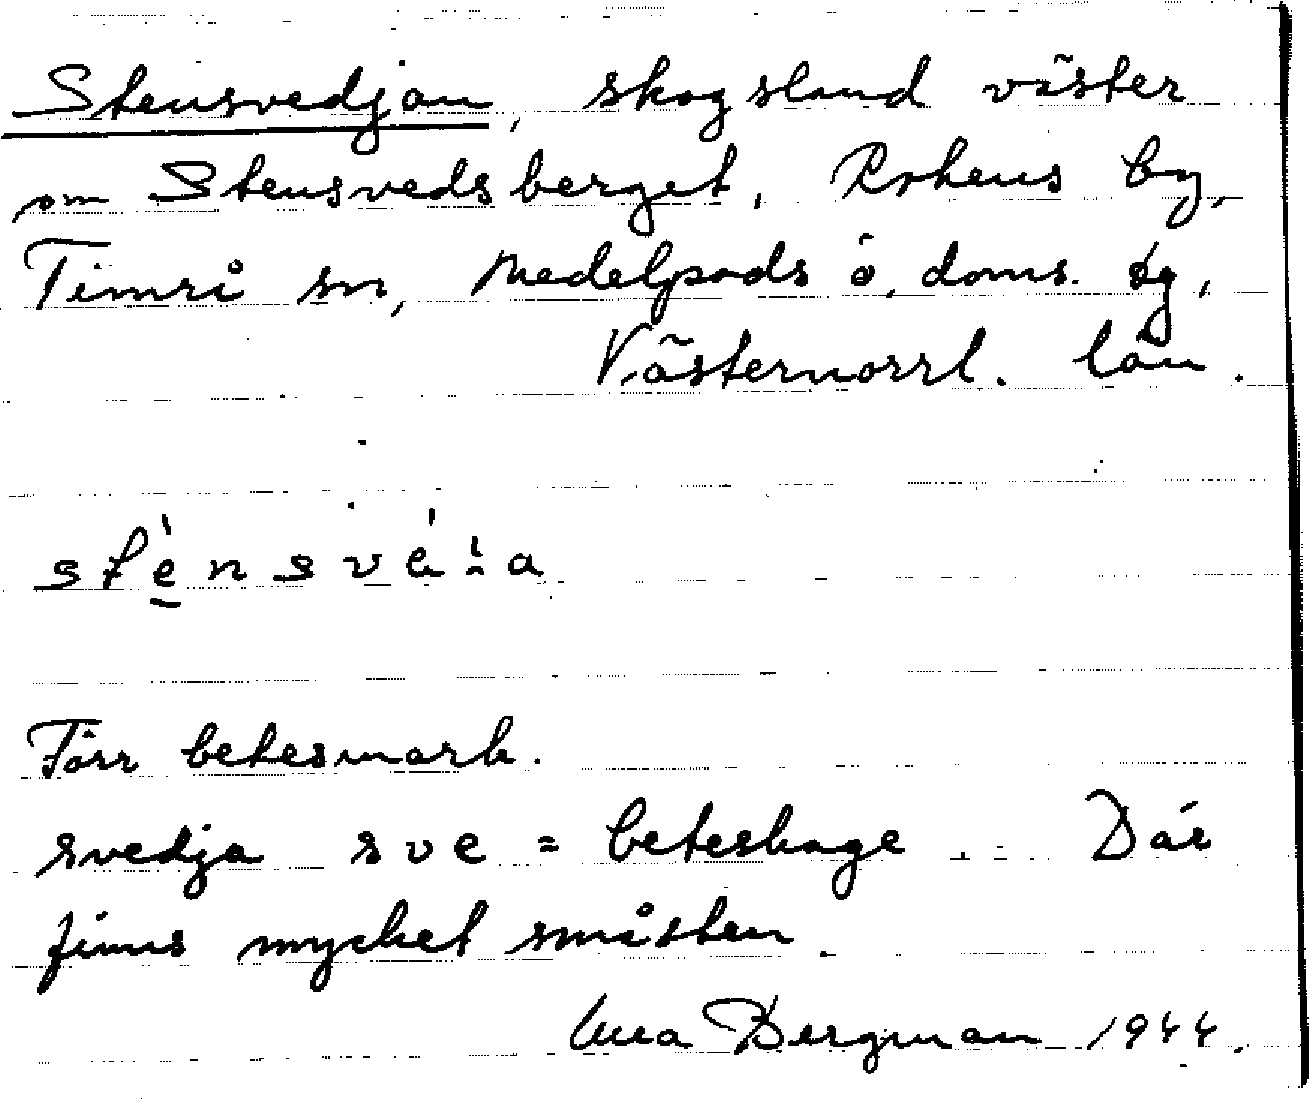 Stensvedjan, skogsland väster
om Stensvedsberget, Rokens by,
Timrå sn, Medelpads ö. doms. dg,
Västernorrl. län.
Förr betesmark.
svedja sve = beteshage. Där
finns mycket småsten.
Bergman 1944.